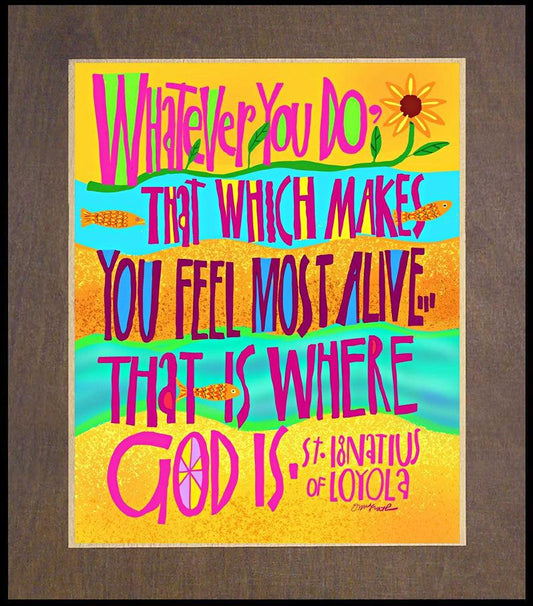 WHATEVER YOU DO,
THAT WHICH MAKES
YOU FEEL MOST ALIVE...
THAT IS WHERE
GOD IS.
ST. IGNATIUS
OF LOYOLA